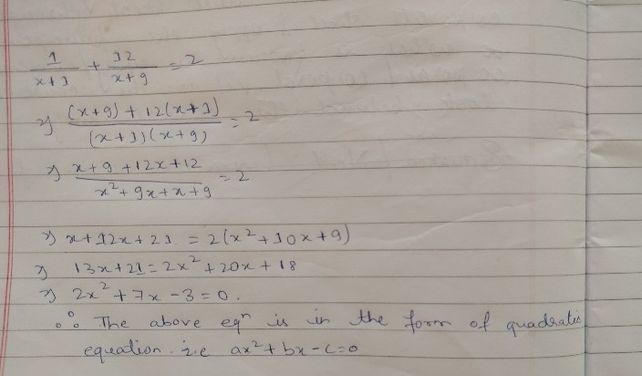 1/(x+1) + 12/(x+9) = 2
⇒ ((x+9) + 12(x+1))/((x+1)(x+9)) = 2
⇒ (x+9+12x+12)/(x²+9x+x+9) = 2
⇒ x+12x+21 = 2(x²+10x+9)
⇒ 13x+21 = 2x²+20x+18
⇒ 2x²+7x-3=0.
∴ The above eqⁿ is in the form of quadratic
equation i.e ax²+bx-c=0